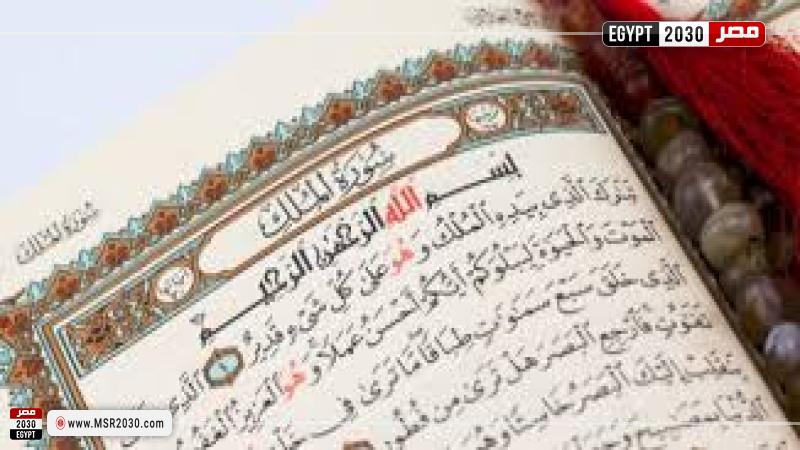 EGYPT 2030 مصر
سُورَةُ المُلْكِ
سُورَةُ المُلْكِ
بِسْمِ اللهِ الرَّحْمٰنِ الرَّحِيمِ
تَبَٰرَكَ الَّذِي بِيَدِهِ الْمُلْكُ وَهُوَ عَلَىٰ كُلِّ شَيْءٍ قَدِيرٌ ١ الَّذِي
الْمَوْتَ وَالْحَيَوٰةَ لِيَبْلُوَكُمْ أَيُّكُمْ أَحْسَنُ عَمَلًا وَهُوَ الْعَزِيزُ
الَّذِي خَلَقَ سَبْعَ سَمَٰوَٰتٍ طِبَاقًا مَّا تَرَىٰ فِي
تَفَٰوُتٍ فَارْجِعِ الْبَصَرَ هَلْ تَرَىٰ مِن فُطُورٍ
يَنقَلِبْ إِلَيْكَ الْبَصَرُ خَاسِئًا وَهُوَ
مصر
2030
EGYPT
www.MSR2030.com